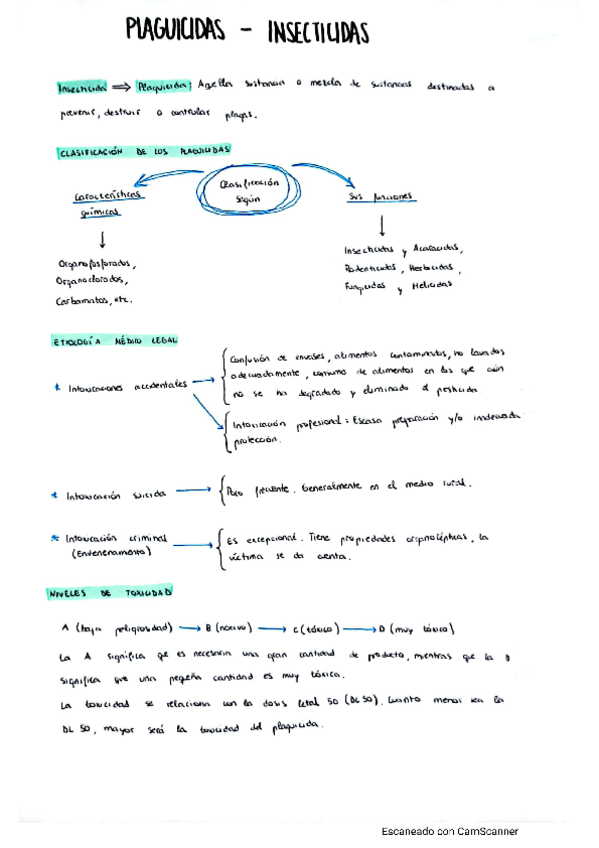 PLAGUICIDAS - INSECTICIDAS
Insecticida ⟹ Plaguicida: Aquella sustancia o mezcla de sustancias destinadas a
prevenir, destruir o controlar plagas.
CLASIFICACIÓN DE LOS PLAGUICIDAS
Clasificación
según
Características
químicas
Sus funciones
Organofosforados,
Organoclorados,
Carbamatos, etc.
Insecticidas y Acaricidas,
Rodenticidas, Herbicidas,
Fungicidas y Helicidas
ETIOLOGÍA MÉDICO LEGAL
* Intoxicaciones accidentales
Confusión de envases, alimentos contaminados, no lavados
adecuadamente, consumo de alimentos en los que aún
no se ha degradado y eliminado el pesticida
Intoxicación profesional: Escasa preparación y/o inadecuada
protección.
* Intoxicación suicida
Poco frecuente. Generalmente en el medio rural.
* Intoxicación criminal
(Envenenamiento)
Es excepcional. Tiene propiedades organolépticas, la
víctima se da cuenta.
NIVELES DE TOXICIDAD
A (baja peligrosidad) → B (nocivo) → C (tóxico) → D (muy tóxico)
La A significa que es necesaria una gran cantidad de producto, mientras que la D
significa que una pequeña cantidad es muy tóxica.
La toxicidad se relaciona con la dosis letal 50 (DL 50). Cuanto menor sea la
DL 50, mayor será la toxicidad del plaguicida.
Escaneado con CamScanner